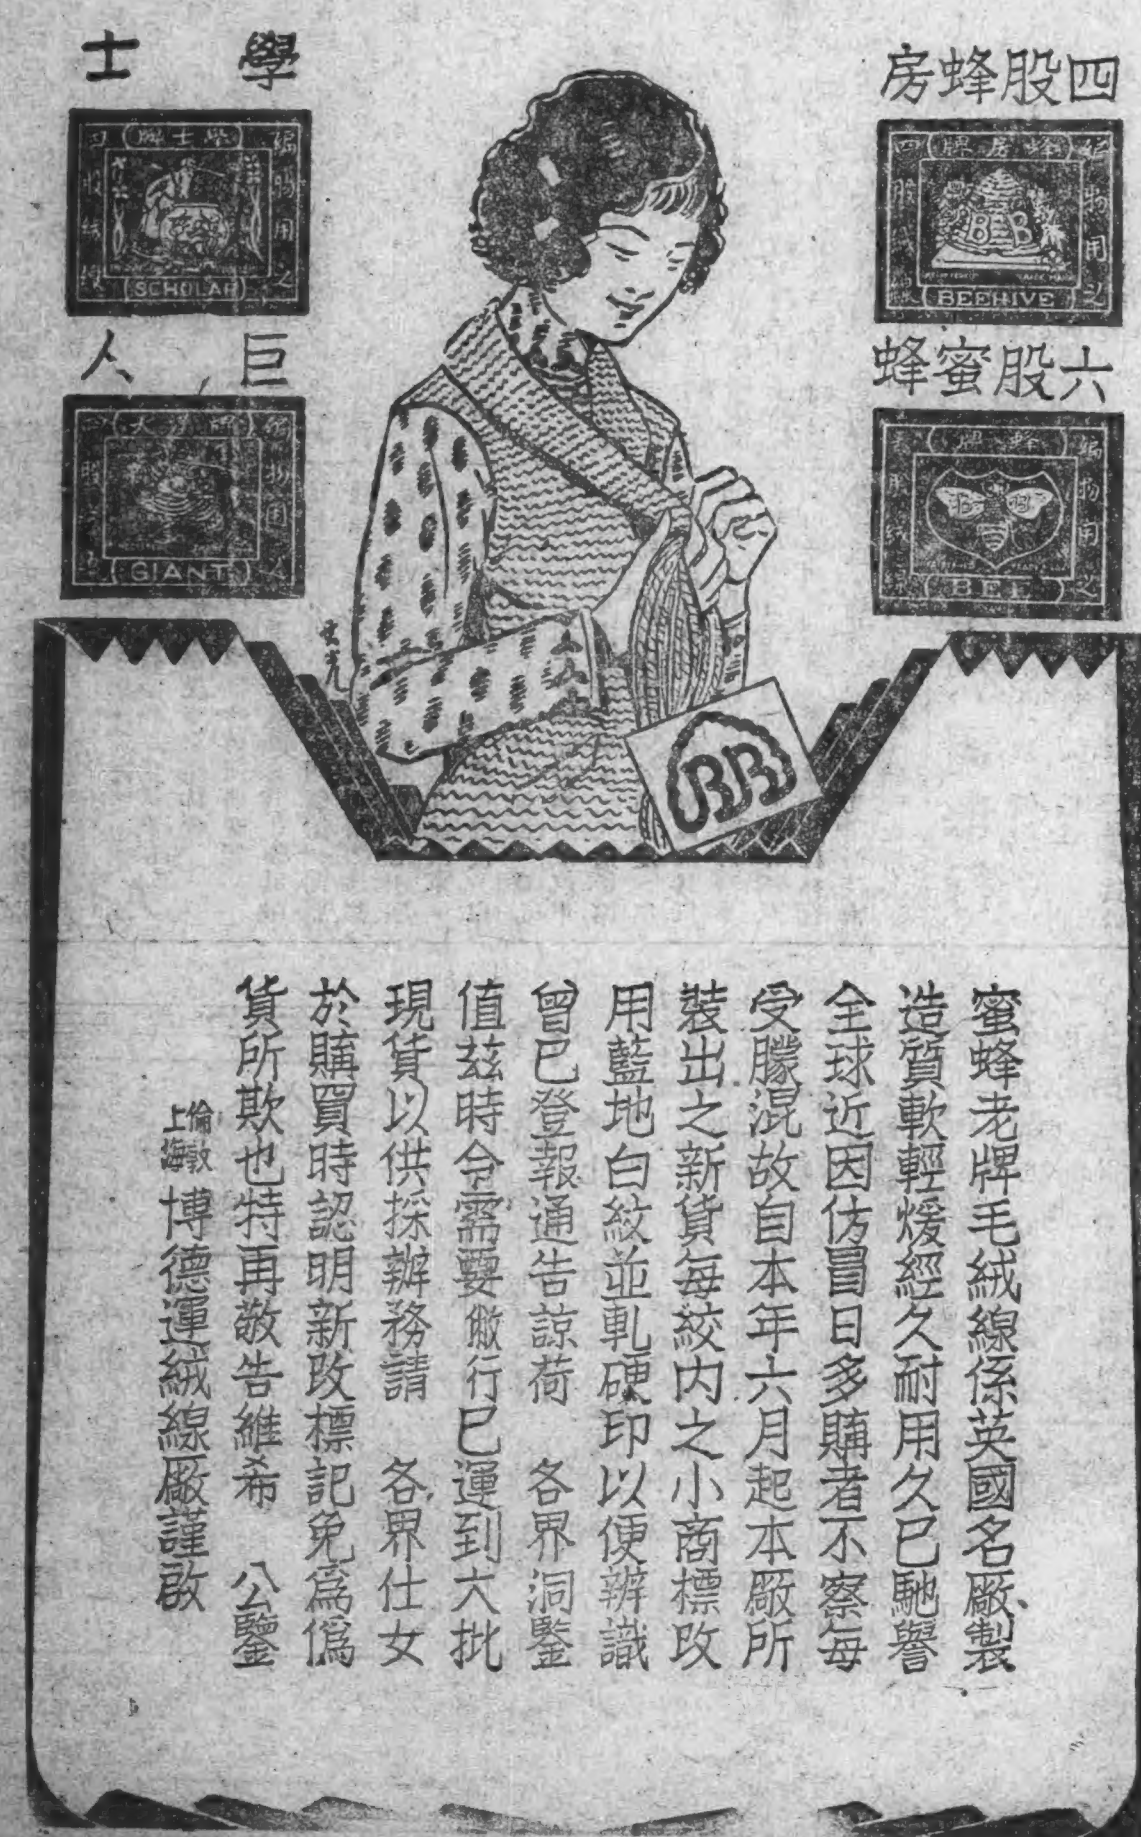 四股蜂房
蜂房牌
編物用之
四股絨線
BB
BEEHIVE
六股蜜蜂
蜂牌
編物用之
B B
BEE
學士
學士牌
編物用之
四股絨線
SCHOLAR
巨人
GIANT
BB
蜜蜂老牌毛絨線係英國名廠製
造質軟輕煖經久耐用久已馳譽
全球近因仿冒日多購者不察每
受朦混故自本年六月起本廠所
裝出之新貨每絞内之小商標改
用藍地白紋並軋硬印以便辨識
曾已登報通告諒荷　各界洞鑒
值茲時令需要敝行已運到大批
現貨以供採辦務請　各界仕女
於購買時認明新改標記免爲僞
貨所欺也特再敬告維希　公鑒
倫敦
上海
博德運絨線廠謹啟